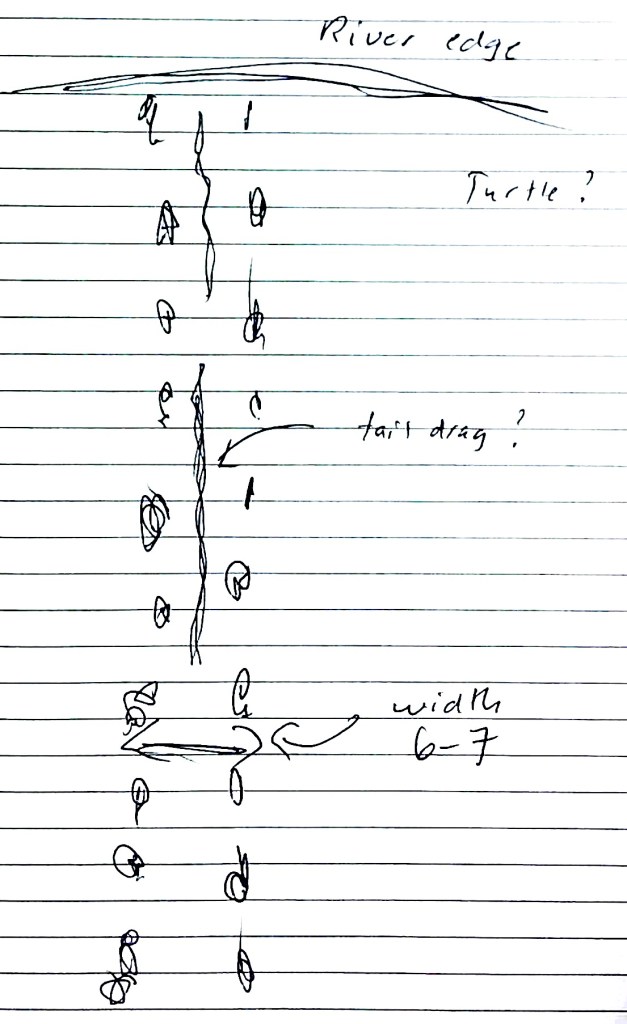 River edge
Turtle?
tail drag?
width
6-7